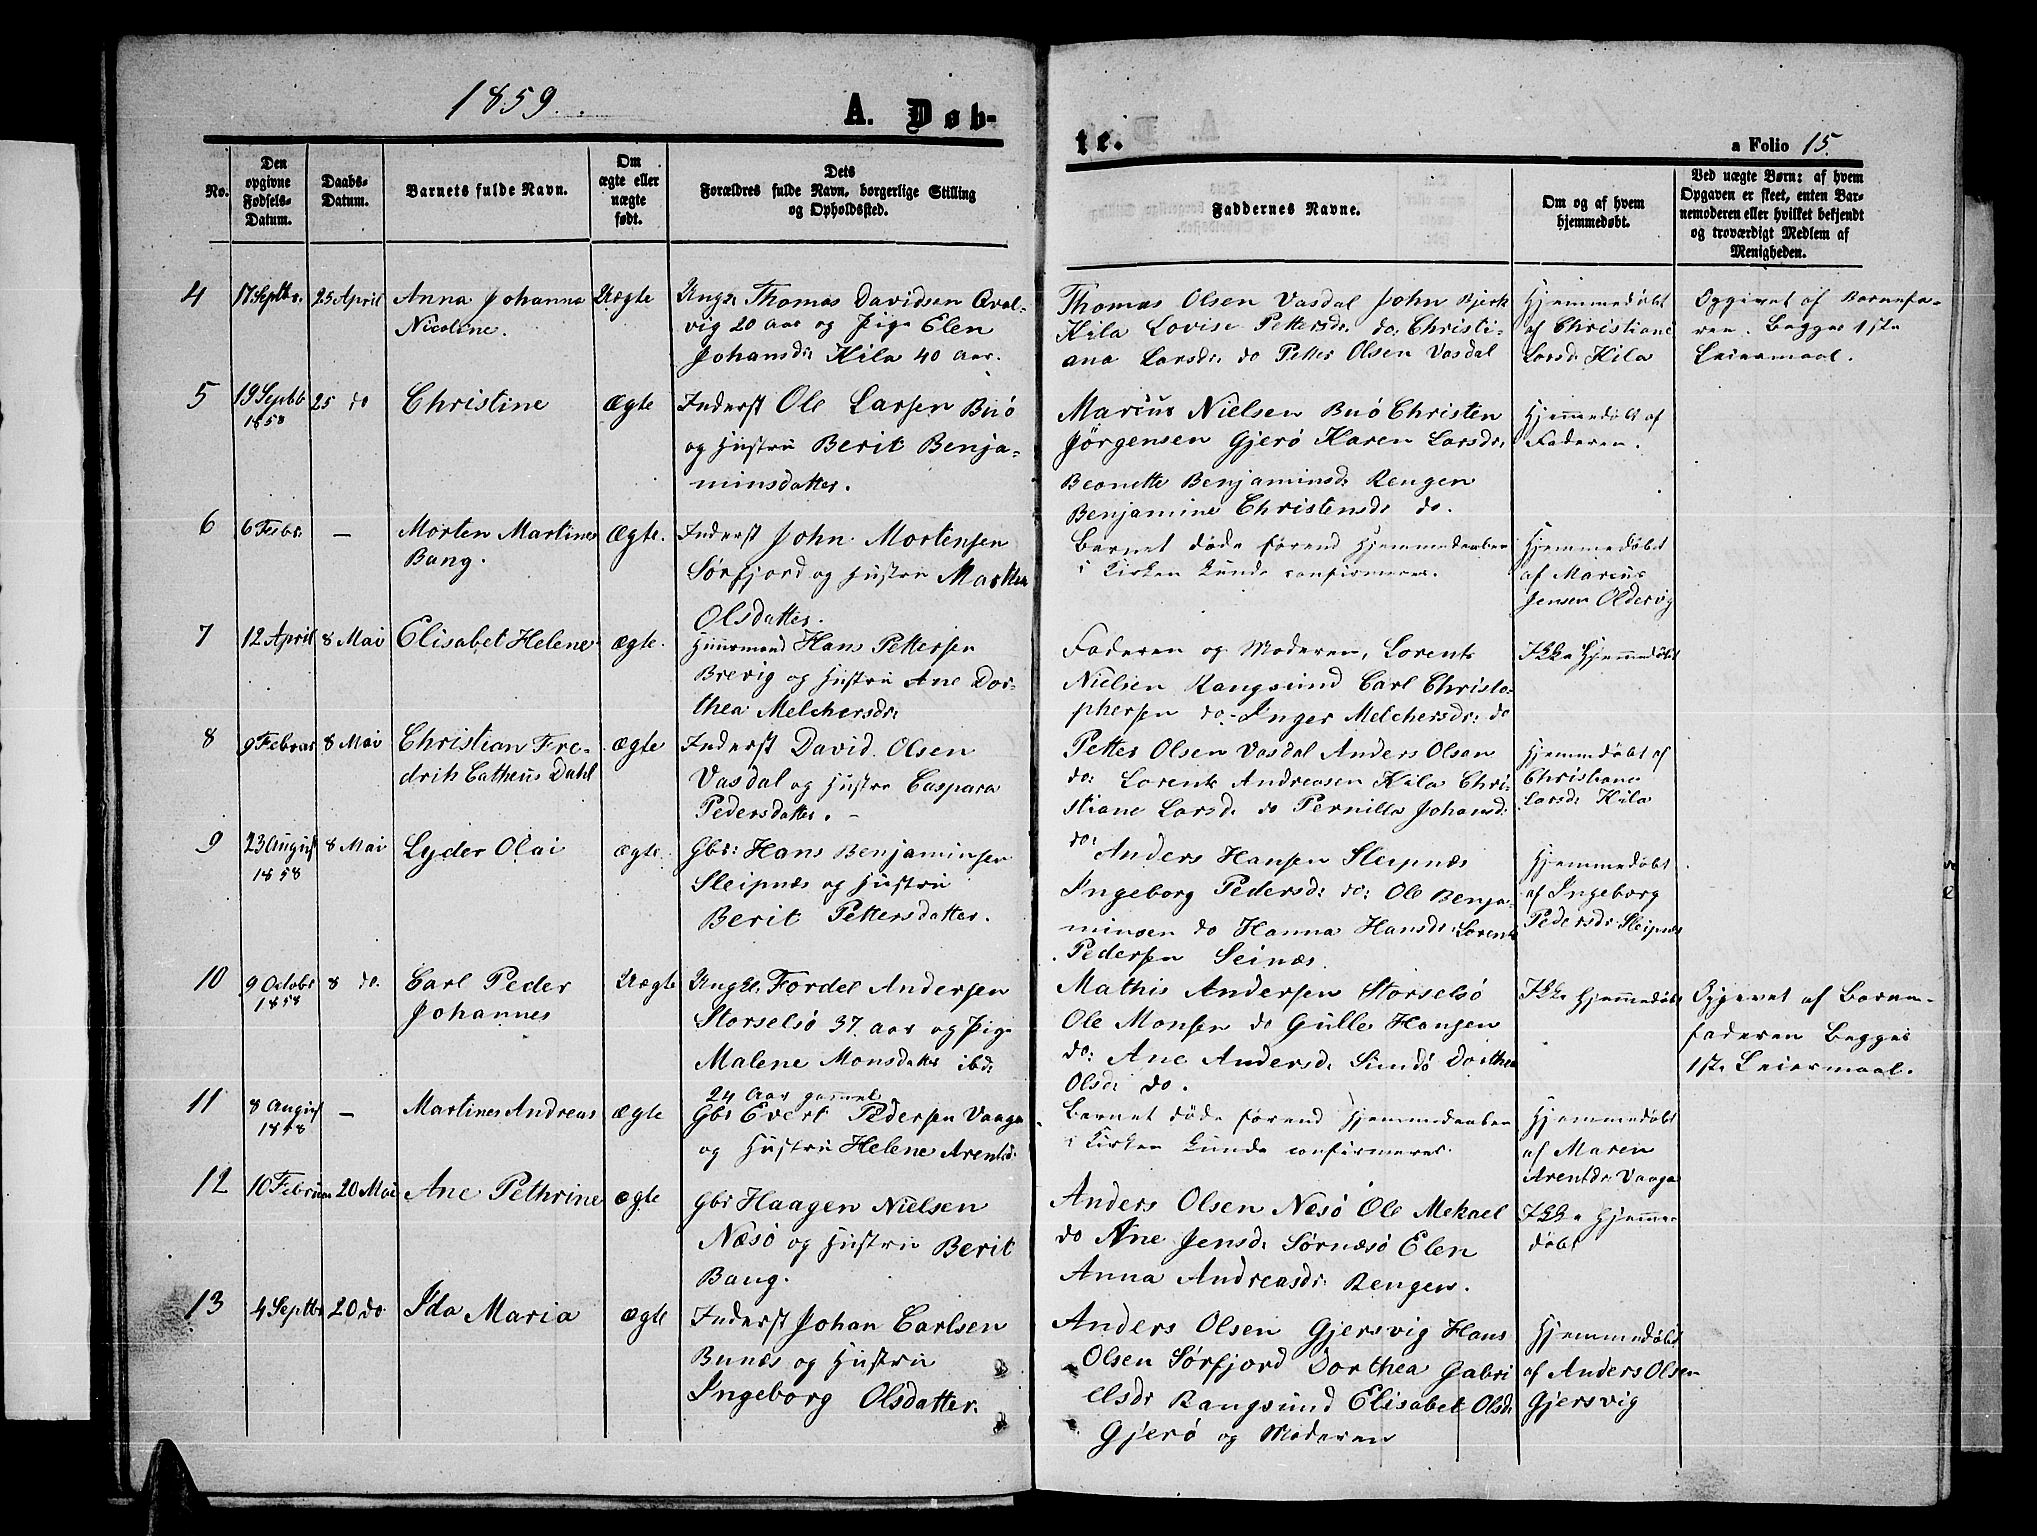 1859.
A. Døb-
te.
a Folio 15.
No.
Den
opgivne
Fødsels-
Datum.
Daabs-
Datum.
Barnets fulde Navn.
Om
ægte eller
uægte
født.
Dets
Forældres fulde Navn, borgerlige Stilling
og Opholdssted.
Faddernes Navne.
Om og af hvem
hjemmedøbt.
Ved uægte Børn: af hvem
Opgaven er skeet, enten Bar-
nemoderen eller hvilket bekjendt
og troværdigt Medlem af
Menigheden.
4
17 Septbr.
25 April
Anna Johanna
Nicoline.
Uægte
Ungk: Thomas Davidsen Qval-
vig 20 Aar og Pige Elen
Johansdr Kila 40 Aar.
Thomas Olsen Vasdal John Bjerk
Kila Lovise Pettersdr do: Christi-
ana Larsdr do Petter Olsen Vasdal
Hjemmedøbt
af Christiane
Larsdr Kila
Opgivet af Barnefa-
ren. Begges 1ste
Leiermaal.
5
19 Septb
1858
25 do
Christine
Ægte
Inderst Ole Larsen Buø
og Hustru Berit Benja-
minsdatter.
Marcus Nielsen Buø Christen
Jørgensen Gjerø Karen Larsdr
Beonette Benjaminsdr Rengen
Benjamine Christensdr do.
Hjemmedøbt af
Faderen.
6
6 Febr.
—
Morten Martines
Bang.
Ægte.
Inderst John Mortensen
Sørfjord og Hustru Marthe
Olsdatter.
Barnet døde førend Hjemmedaaben
i Kirken kunde confirmeres.
Hjemmedøbt
af Marcus
Jensen Oldervig
7
12 April
8 Mai
Elisabet Helene
Ægte.
Huusmand Hans Pettersen
Brevig og Hustru Ane Dor-
thea Melchersdr
Faderen og Moderen, Lorents
Nielsen Rangsund Carl Christo-
phersen do- Inger Melchersdr do
Ikke Hjemmedøbt
8
9 Februar
8 Mai
Christian Fre-
drik Catheus Dahl
Ægte
Inderst David Olsen
Vasdal og Hustru Caspara
Pedersdatter. -
Petter Olsen Vasdal Anders Olsen
do: Lorents Andreasen Kila Chri-
stiane Larsdr do Pernille Johansdr
do:
Hjemmedøbt af
Christiane
Larsdr Kila
9
23 August
1858
8 Mai
Lyder Olai
Ægte
Gbr: Hans Benjaminsen
Sleipnæs og Hustru
Berit Pettersdatter.
Anders Hansen Sleipnæs
Ingeborg Pedersdr do: Ole Benja-
minsen do Hanna Hansdr Lorents
Pedersen Seinæs.
Hjemmedøbt
af Ingeborg
Pedersdr Sleipnæs
10
9 Octobr
1858
8 do.
Carl Peder
Johannes
Uægte
Ungk. Fordel Andersen
Storselsø 37 Aar og Pige
Malene Monsdatter ibd:
24 Aar gammel
Mathis Andersen Storselsø
Ole Monsen do Gulle Hansen
do: Ane Andersdr Sundø Dorthea
Olsdr do.
Ikke Hjemmedøbt
Opgivet af Barne-
faderen Begges
1ste Leiermaal.
11
8 August
1858
—
Martines Andreas
Ægte
Gbr Evert Pedersen Vaaga
og Hustru Helene Arentsdr
Barnet døde førend Hjemmedaaben
i Kirken kunde confirmeres.
Hjemmedøbt
af Maren
Arentdr Vaaga
12
10 Februar
20 Mai
Ane Pethrine
Ægte
Gbr Haagen Nielsen
Næsø og Hustru Berit
Bang.
Anders Olsen Næsø Ole Mekael
do Ane Jensdr Sørnæsø Elen
Anna Andreasdr Rengen.
Ikke Hjemme-
døbt
13
4 Septbr
20 do
Ida Maria
Ægte
Inderst Johan Carlsen
Bunæs og Hustru
Ingeborg Olsdatter.
Anders Olsen Gjersvig Hans
Olsen Sørfjord Dorthea Gabri
elsdr Rangsund Elisabet Olsdr
Gjerø og Moderen
Hjemmedøbt
af Anders Olsen
Gjersvig